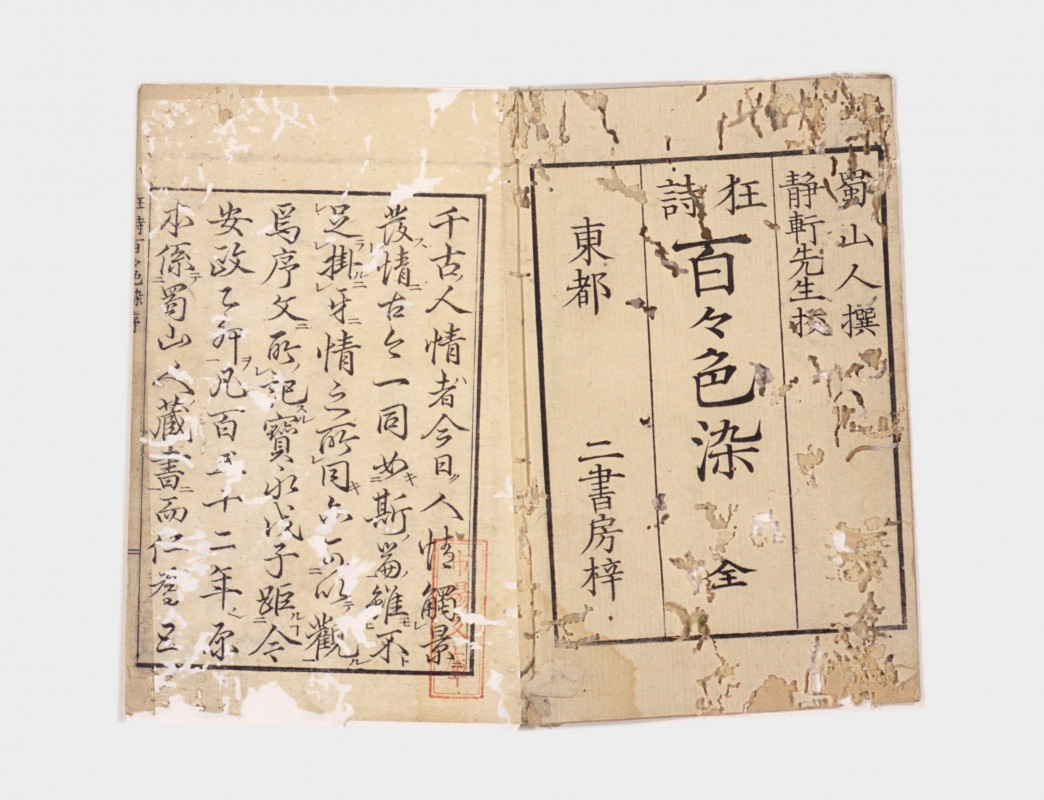 蜀山人撰
静軒先生校
狂詩
百々色染 全
東都 二書房梓
千古人情者今日人情觸景
發情古今一同如斯篇雖不
足掛牙情之所同亦可以觀
爲序文所記寶永戊子距今
安政乙卯凡百五十二年原
本係蜀山人蔵書而
狂詩百々色染序